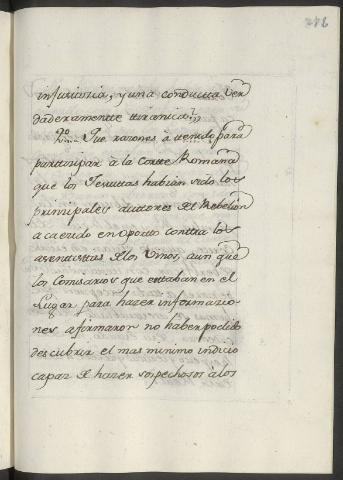 injusticia, y una conducta ver
daderamente tiranica?
2º Que razones à tenido para
participar à la Corte Romana
que los Jesuitas habian sido los
principales autores de Rebelion
acaecido en Oporto contra los
asentistas de los Vinos, aunque
los Comisarios que estaban en el
Lugar para hazer informacio
nes afirmaron no haber podido
descubrir el mas minimo indicio
capaz de hazer sospechosos à los